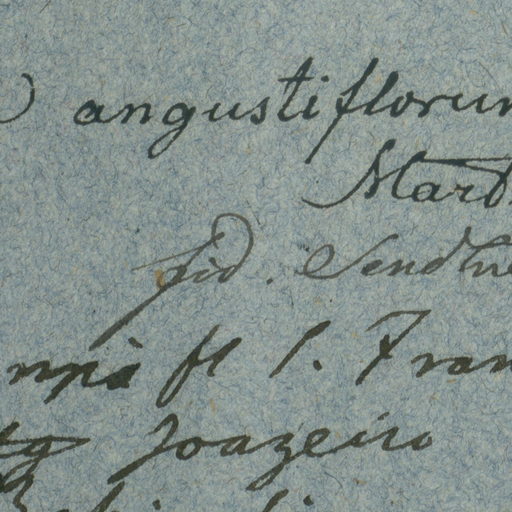 angustiflorum
Mart.
fid. Sendtne
fl S. Fran
Joazeiro